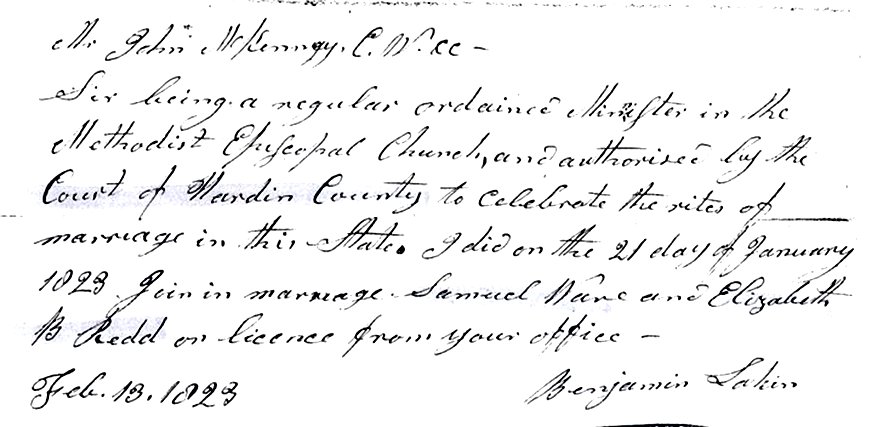 Mr John McKenney. C. W. CC –
Sir being a regular ordained Minister in the
Methodist Episcopal Church, and authorised by the
Court of Hardin County to celebrate the rites of
marriage in this State. I did on the 21 day of January
1823 Join in marriage Samuel Hare and Elizabeth
B Redd on licence from your office –
Feb. 13. 1823 Benjamin Lakin